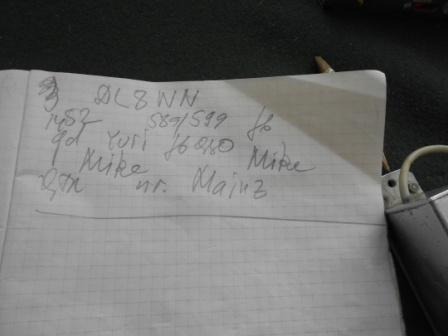 3 DL8WN
1452 589/599 fb
gd Yuri fb QSO
Mike Mike
Qth nr. Mainz